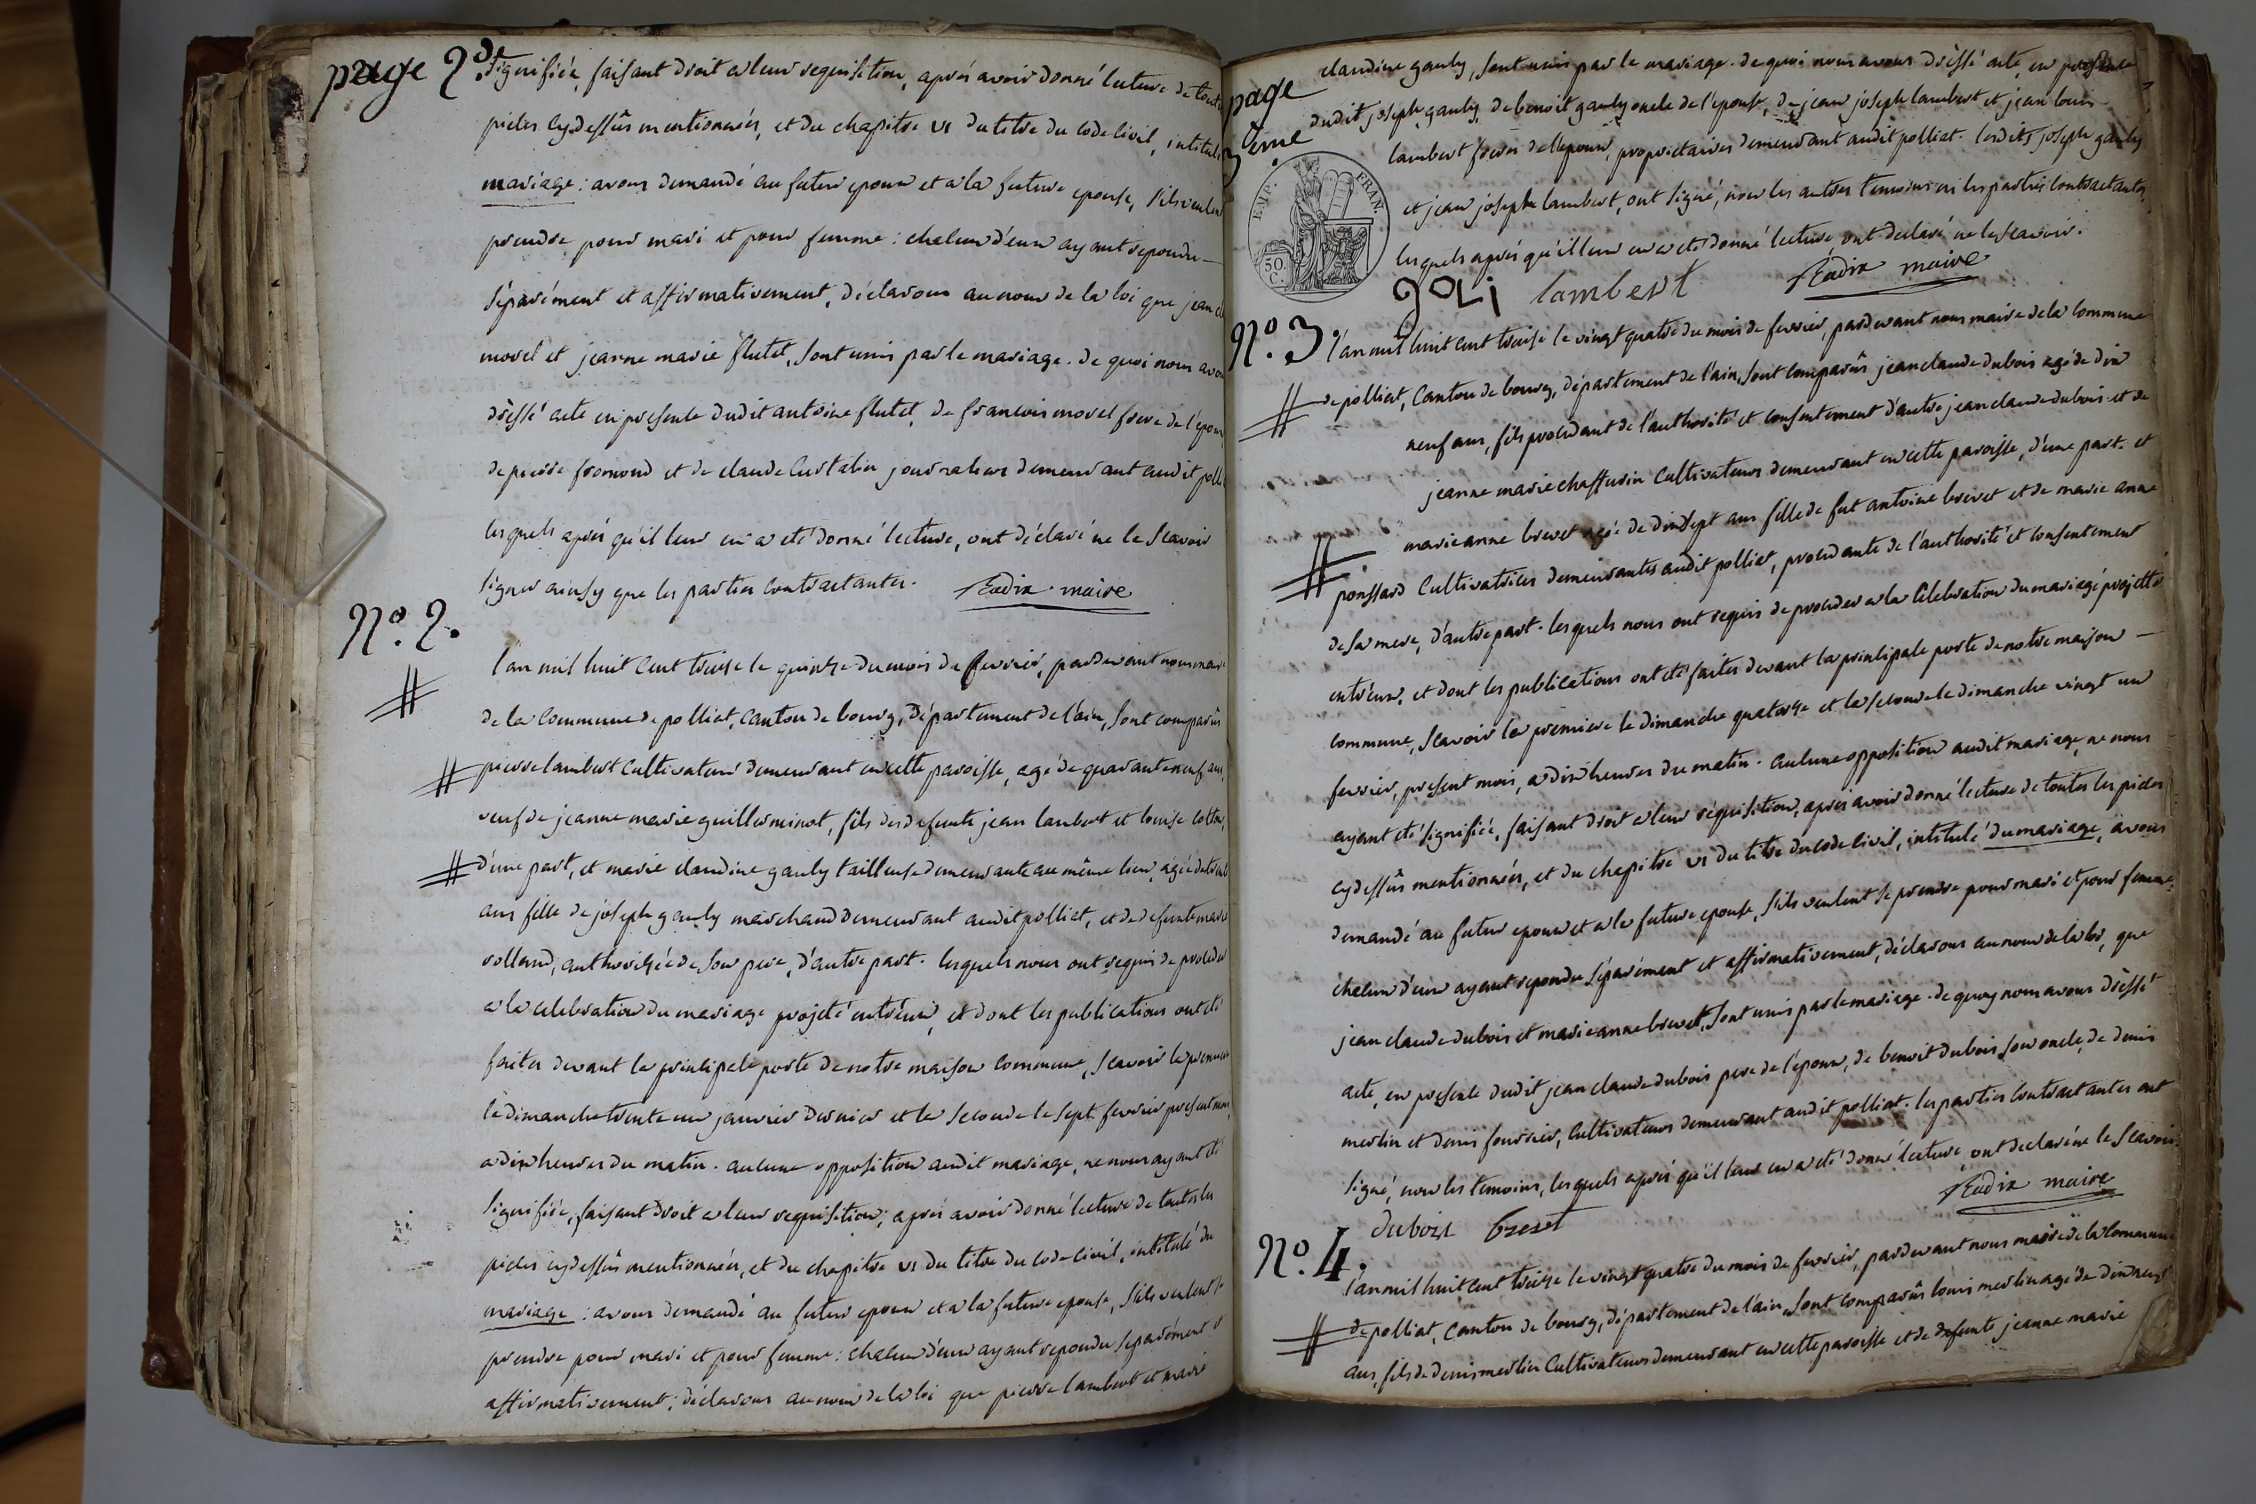 page 2de
signifiée, faisant droit a leur requisition, aprés avoir donné lecture de toutes
pieces cydessûs mentionnées, et du chapitre VI du titre du code civil, intitulé
mariage : avons demandé au futur epoux et a la future epouse, s'ils veulent
prendre pour mari et pour femme : chacun d'eux ayant repondu
séparément et affirmativement, déclarons au nom de la loi que jean
morel et jeanne marie flutet, sont unis par le mariage. de quoi nous avons
dressé acte en presence dudit antoine flutet, de francois morel frere de l'epoux
de pierre fromond et de claude journaliers demeurant audit polliat
lesquels aprés qu'il leur en a eté donné lecture, ont déclaré ne le scavoir
signer ainsy que les parties contractantes. maire
No. 2.
l'an mil huit cent treise le quinze du mois de fevrier, pardevant nous maire
de la commune de polliat, canton de bourg, département de l'ain, sont comparûs
pierre lambert cultivateur demeurant en cette paroisse, agé de quarante neuf ans,
veuf de jeanne marie guillerminot, fils des defunts jean lambert et louise
d'une part, et marie claudine gauly tailleuse demeurante au même lieu, agée de trente
ans fille de joseph gauly marchand demeurant audit polliat, et de defunte marie
rolland, authorisée de son pere, d'autre part. lesquels nous ont requis de proceder
a la celebration du mariage projeté entr'eux, et dont les publications ont eté
faites devant la principale porte de notre maison commune, scavoir la premiere
le dimanche trente un janvier dernier et la seconde le sept fevrier present mois,
a dix heures du matin. aucune opposition audit mariage, ne nous ayant eté
signifiée, faisant droit a leur requisition, aprés avoir donné lecture de toutes les
pieces cydessûs mentionnées, et du chapitre VI du titre du code civil, intitulé du
mariage : avons demandé au futur epoux et a la future epouse, s'ils veulent se
prendre pour mari et pour femme : chacun d'eux ayant repondu separément et
affirmativement, déclarons au nom de la loi que pierre lambert et marie
page 3eme
claudine gauly, sont unis par le mariage. de quoi nous avons dressé acte, en presence
dudit joseph gauly, de benoit gauly oncle de l'epouse, de jean joseph lambert et jean louis
lambert freres de l'epoux, proprietaires demeurant audit polliat. lesdits joseph gauly
et jean joseph lambert, ont signé, non les autres temoins ni les parties contractantes,
lesquels aprés qu'il leur en a eté donné lecture ont declaré ne le scavoir.
EMP. FRAN.
50 C.
goli lambert maire
No. 3
l'an mil huit cent treise le vingt quatre du mois de fevrier, pardevant nous maire de la commune
de polliat, canton de bourg, département de l'ain, sont comparûs jean claude dubois agé de dix
neuf ans, fils procedant de l'authorité et consentement d'autre jean claude dubois et de
jeanne marie chaffurin cultivateurs demeurant en cette paroisse, d'une part. et
marie anne brevet agée de dix sept ans fille de fut antoine brevet et de marie anne
ponssard cultivatrices demeurantes audit polliat, procedante de l'authorité et consentement
de sa mere, d'autre part. lesquels nous ont requis de proceder a la celebration du mariage projetté
entr'eux, et dont les publications ont eté faites devant la principale porte de notre maison
commune, scavoir la premiere le dimanche quatorze et la seconde le dimanche vingt un
fevrier, present mois, a dix heures du matin. aucune opposition audit mariage, ne nous
ayant eté signifiée, faisant droit a leur réquisition, aprés avoir donné lecture de toutes les pieces
cydessûs mentionnées, et du chapitre VI du titre du code civil, intitulé du mariage, avons
demandé au futur epoux et a la future epouse, s'ils veulent se prendre pour mari et pour femme :
chacun d'eux ayant repondu séparément et affirmativement, déclarons au nom de la loi, que
jean claude dubois et marie anne brevet, sont unis par le mariage. de quoy nous avons dressé
acte, en presence dudit jean claude dubois pere de l'epoux, de benoit dubois son oncle, de denis
merlin et denis fourrier, cultivateurs demeurant audit polliat. les parties contractantes ont
signé, non les temoins, lesquels aprés qu'il leur en a eté donné lecture, ont declaré ne le scavoir.
dubois brevet maire
No. 4.
l'an mil huit cent treize le vingt quatre du mois de fevrier, pardevant nous maire de la commune
de polliat, canton de bourg, département de l'ain, sont comparûs louis merlin agé de dix neuf
ans, fils de denis merlin cultivateurs demeurant en cette paroisse et de defunte jeanne marie